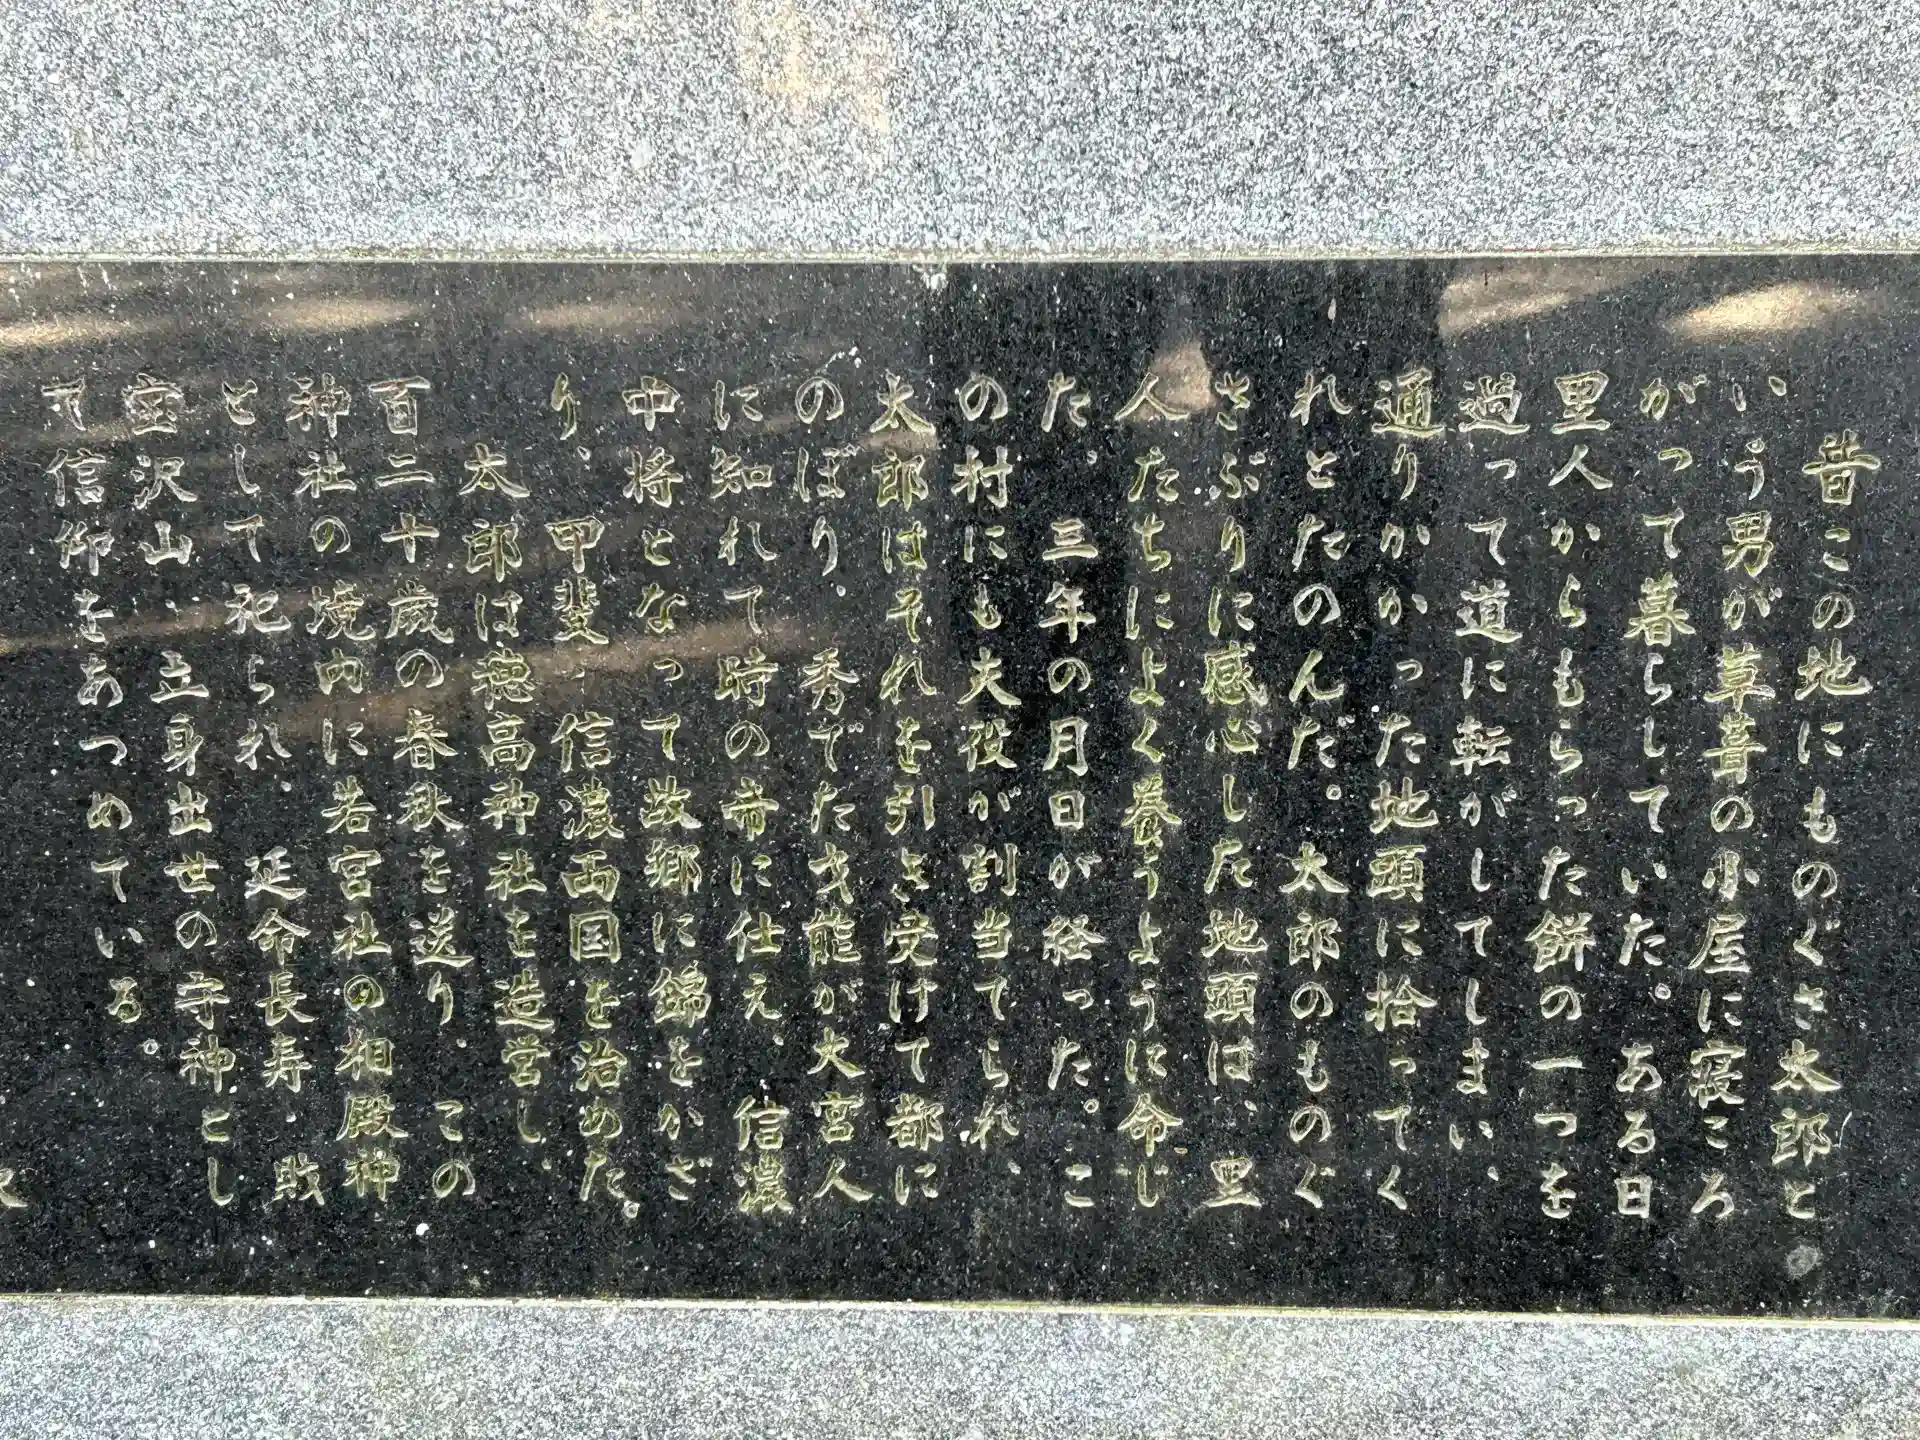 昔この地にものぐさ太郎と
いう男が草葺の小屋に寝ころ
がって暮らしていた。ある日
里人からもらった餅の一つを
過って道に転がしてしまい、
通りかかった地頭に拾ってく
れとたのんだ。太郎のものぐ
さぶりに感心した地頭は、里
人たちによく養うように命じ
た。三年の月日が経った。こ
の村にも夫役が割当てられ、
太郎はそれを引き受けて都に
のぼり、秀でた才能が大宮人
に知れて時の帝に仕え、信濃
中将となって故郷に錦をかざ
り、甲斐、信濃両国を治めた。
太郎は穂高神社を造営し、
百二十歳の春秋を送り、この
神社の境内に若宮社の相殿神
として祀られ、延命長寿、財
宝沢山、立身出世の守神とし
て信仰をあつめている。